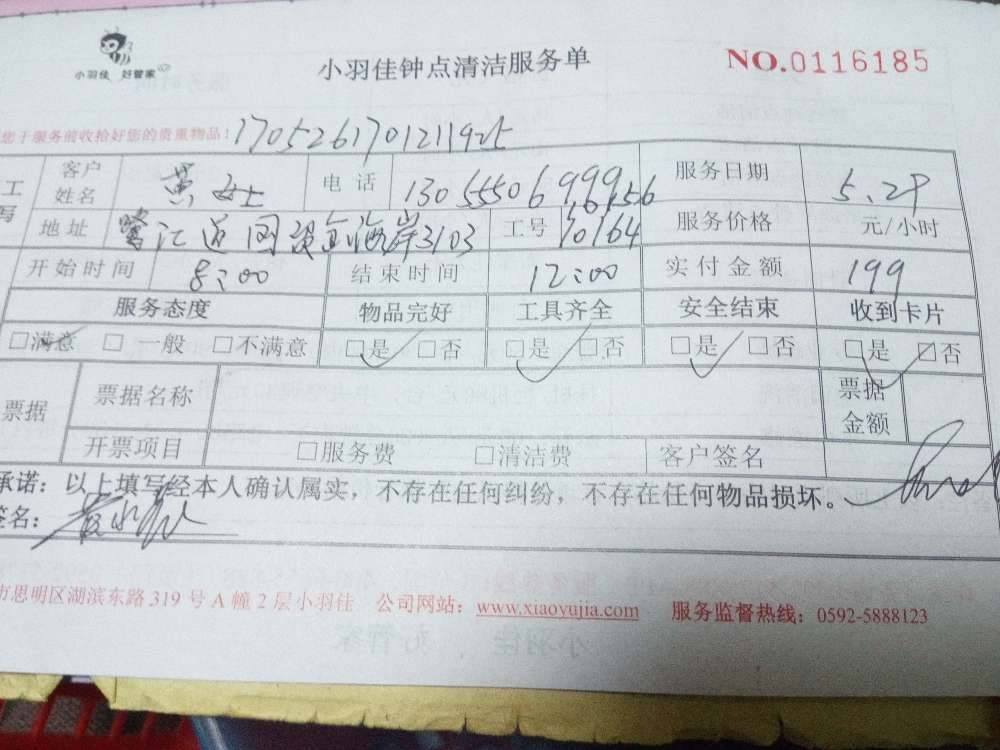 小羽佳 好管家
小羽佳钟点清洁服务单
NO.0116185
您于服务前收拾好您的贵重物品！
1705261701211925
工 客户姓名 黄女士 电话 服务日期 5.29
写 地址 鹭江道 海岸3103 工号 10164 服务价格 元/小时
开始时间 8:00 结束时间 12:00 实付金额 199
服务态度 物品完好 工具齐全 安全结束 收到卡片
□满意 □一般 □不满意 □是 □否 □是 □否 □是 □否 □是 □否
票据 票据名称 票据金额
开票项目 □服务费 □清洁费 客户签名
承诺：以上填写经本人确认属实，不存在任何纠纷，不存在任何物品损坏。
签名：
市思明区湖滨东路 319 号 A 幢 2 层小羽佳 公司网站：www.xiaoyujia.com 服务监督热线：0592-5888123